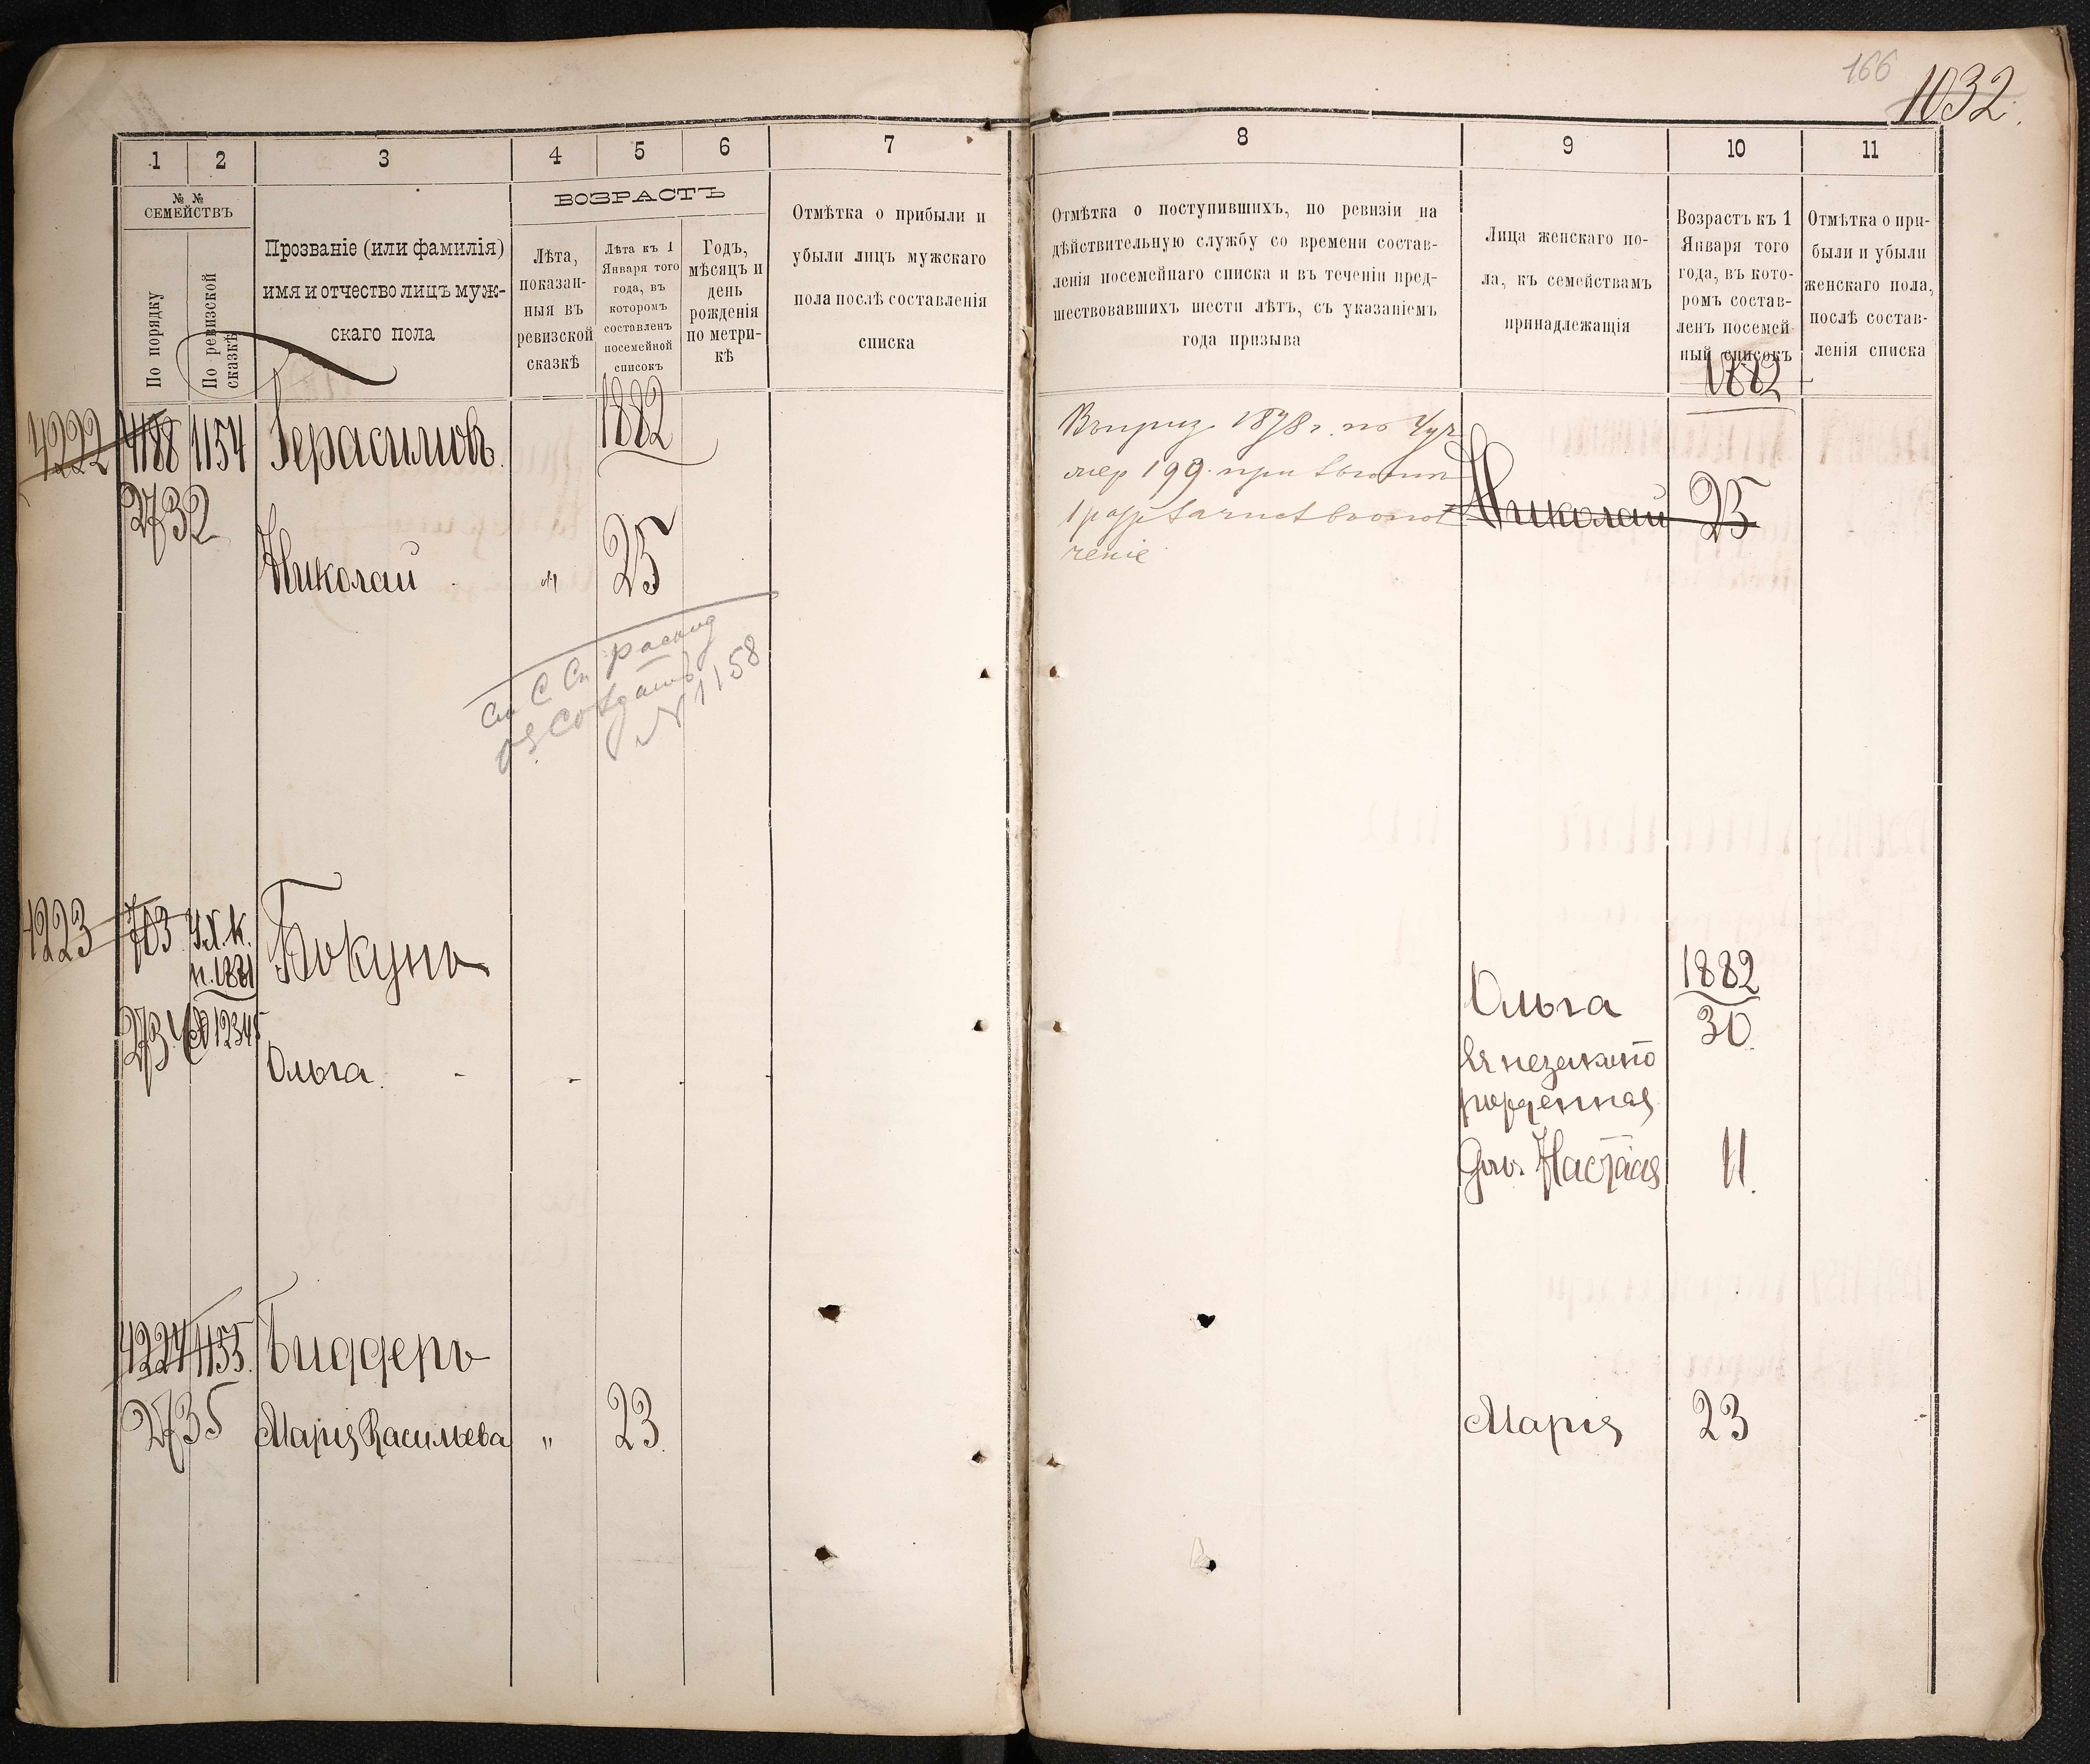 166
1032.
1
2
3
4
5
6
7
№ №
СЕМЕЙСТВЪ
По порядку
По ревизской
сказкѣ
Прозваніе (или фамилія)
имя и отчество лицъ муж-
скаго пола
ВОЗРАСТЪ
Лѣта,
показан-
ныя въ
ревизской
сказкѣ
Лѣта къ 1
Января того
года, въ
которомъ
составленъ
посемейной
списокъ
Годъ,
мѣсяцъ и
день
рожденія
по метри-
кѣ
Отмѣтка о прибыли и
убыли лицъ мужскаго
пола послѣ составленія
списка
4222 4188 1154 Герасимовъ 1882
2732
Николай 25
№ 1158
4223 703
п. 1881 Бокунъ
№ 12345
Ольга - - - -
4224 1155 Биддеръ
2735 Марія Васильева " 23
8
9
10
11
Отмѣтка о поступившихъ, по ревизіи на
дѣйствительную службу со времени состав-
ленія посемейнаго списка и въ теченіи пред-
шествовавшихъ шести лѣтъ, съ указаніемъ
года призыва
Лица женскаго по-
ла, къ семействамъ
принадлежащія
Возрастъ къ 1
Января того
года, въ кото-
ромъ состав-
ленъ посемей-
ный списокъ
Отмѣтка о при-
были и убыли
женскаго пола,
послѣ состав-
ленія списка
1882
1878 г. по
199
Николай 25
ченіе
Ольга 1882
30
Ея незаконно
рожденная
дочь Настасія 11.
Марія 23